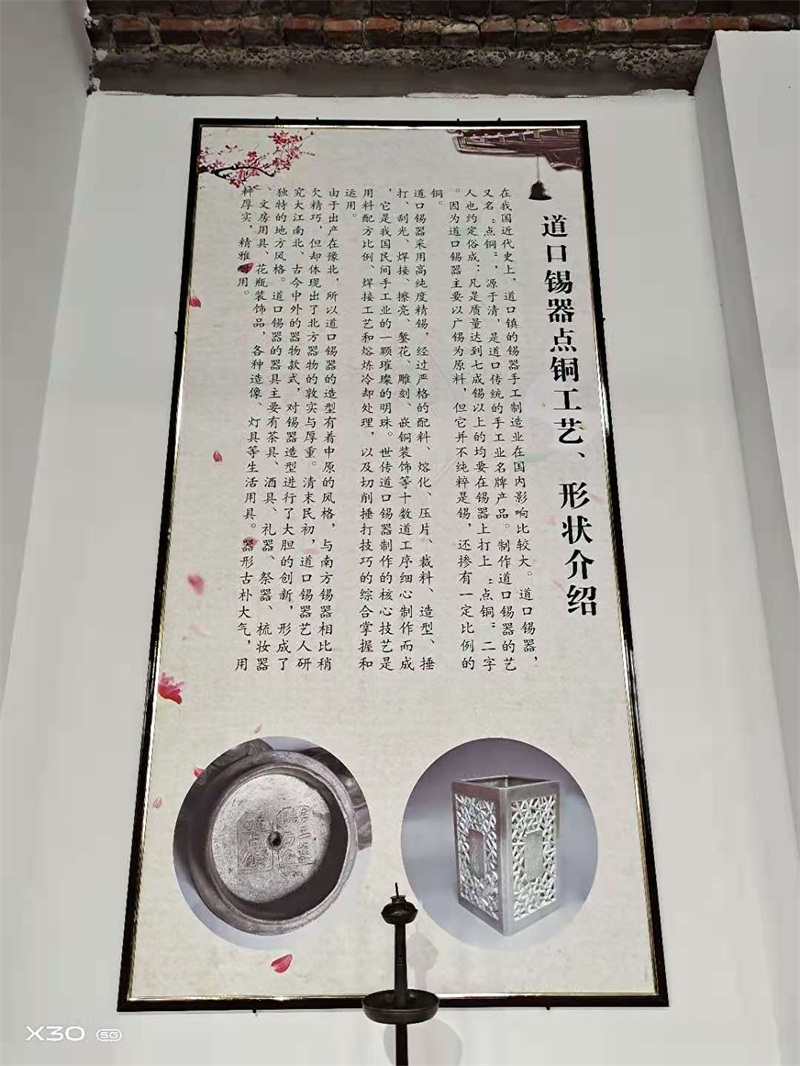 道口锡器点铜工艺、形状介绍
在我国近代史上，道口镇的锡器手工制造业在国内影响比较大。道口锡器，
又名“点铜”，源于清，是道口传统的手工业名牌产品。制作道口锡器的艺
人也约定俗成：凡是质量达到七成锡以上的均要在锡器上打上“点铜”二字
。因为道口锡器主要以广锡为原料，但它并不纯粹是锡，还掺有一定比例的
铜。
道口锡器采用高纯度精锡，经过严格的配料、熔化、压片、裁料、造型、捶
打、刮光、焊接、擦亮、錾花、雕刻、嵌铜装饰等十数道工序细心制作而成
，它是我国民间手工业的一颗璀璨的明珠。世传道口锡器制作的核心技艺是
用料配方比例、焊接工艺和熔炼冷却处理，以及切削捶打技巧的综合掌握和
运用。
由于出产在豫北，所以道口锡器的造型有着中原的风格，与南方锡器相比稍
欠精巧，但却体现出了北方器物的敦实与厚重。清末民初，道口锡器艺人研
究大江南北、古今中外的器物款式，对锡器造型进行了大胆的创新，形成了
独特的地方风格。道口锡器的器具主要有茶具、酒具、礼器、祭器、梳妆器
、文房用具、花瓶装饰品，各种造像、灯具等生活用具。器形古朴大气，用
料厚实，精雅耐用。
X30 5G